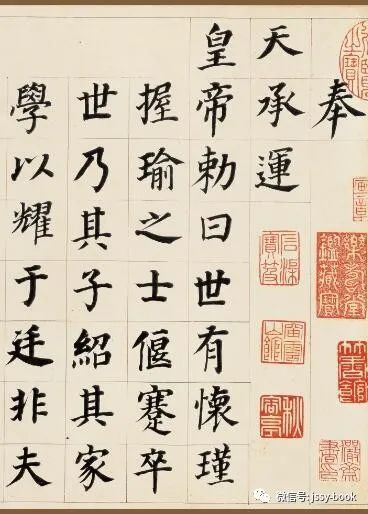 奉
天承運
皇帝勅曰世有懷瑾
握瑜之士偃蹇卒
世乃其子紹其家
學以耀于廷非夫
微信号: jssy-book